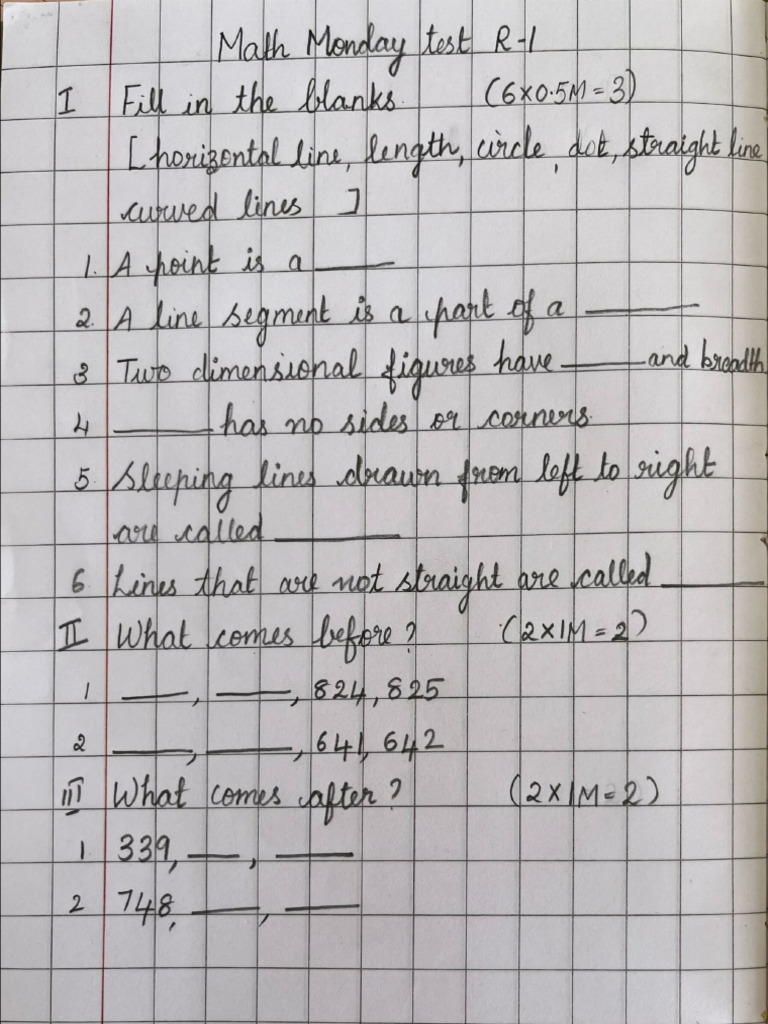 Math Monday test R-1
I Fill in the blanks. (6×0.5M=3)
[horizontal line, length, circle, dot, straight line
curved lines ]
1. A point is a ____
2. A line segment is a part of a ____
3 Two dimensional figures have ____ and breadth
4 ____ has no sides or corners.
5. Sleeping lines drawn from left to right
are called ____
6 Lines that are not straight are called ____
II What comes before? (2×1M=2)
1 ____, ____, 824, 825
2 ____, ____, 641, 642
III What comes after? (2×1M=2)
1 339, ____, ____
2 748, ____, ____